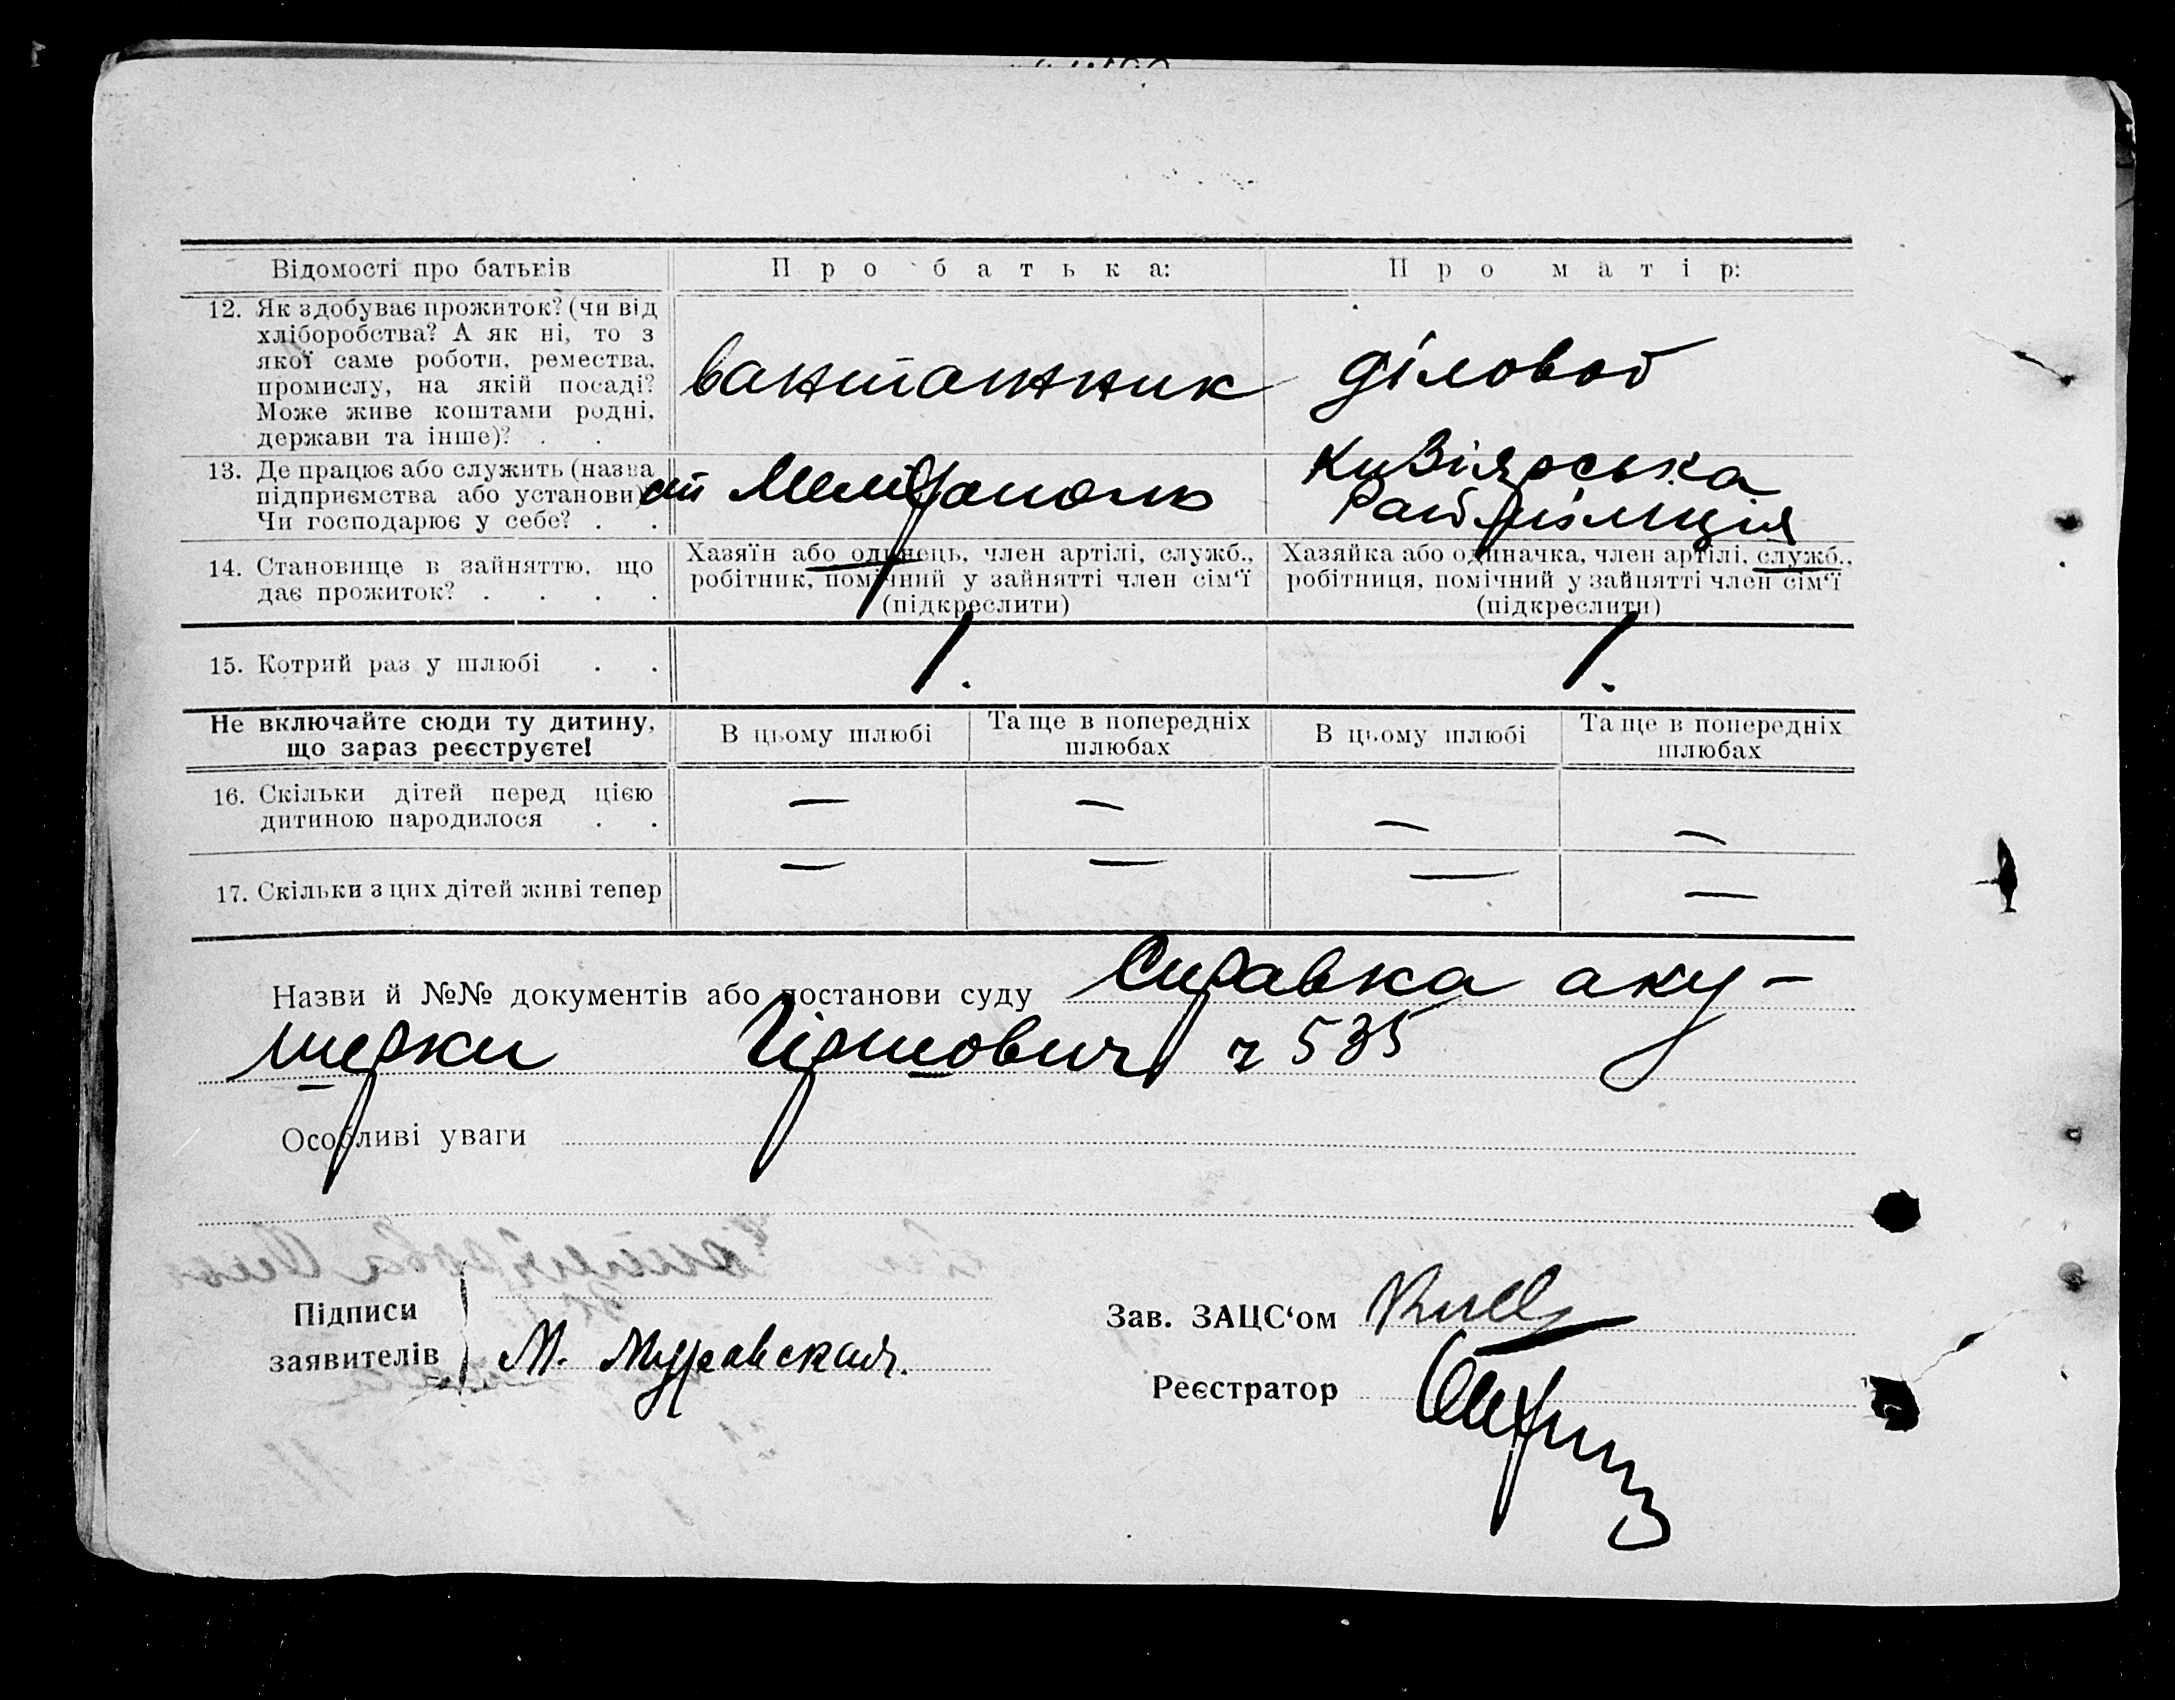 Відомості про батьків
Про батька:
Про матір:
12. Як здобуває прожиток? (чи від
хліборобства? А як ні, то з
якої саме роботи, ремества,
промислу, на якій посаді?
Може живе коштами родні,
держави та інше)? . .
вантажник
діловод
13. Де працює або служить (назва
підприємства або установи)
Чи господарює у себе? . .
ст Мелитополь
Кизіярська
Райміліція
14. Становище в зайняттю, що
дає прожиток? . . . .
Хазяїн або одинець, член артілі, служб.,
робітник, помічний у зайнятті член сім'ї
(підкреслити)
Хазяйка або одиначка, член артілі, служб.,
робітниця, помічний у зайнятті член сім'ї
(підкреслити)
15. Котрий раз у шлюбі . .
1.
1.
Не включайте сюди ту дитину,
що зараз реєструєте!
В цьому шлюбі
Та ще в попередніх
шлюбах
В цьому шлюбі
Та ще в попередніх
шлюбах
16. Скільки дітей перед цією
дитиною народилося . .
— — — —
17. Скільки з цих дітей живі тепер
— — — —
Назви й №№ документів або постанови суду Справка аку-
шерки Гіршович ч 535
Особливі уваги
Підписи
заявителів
М. Муравская.
Зав. ЗАЦС'ом
Реєстратор